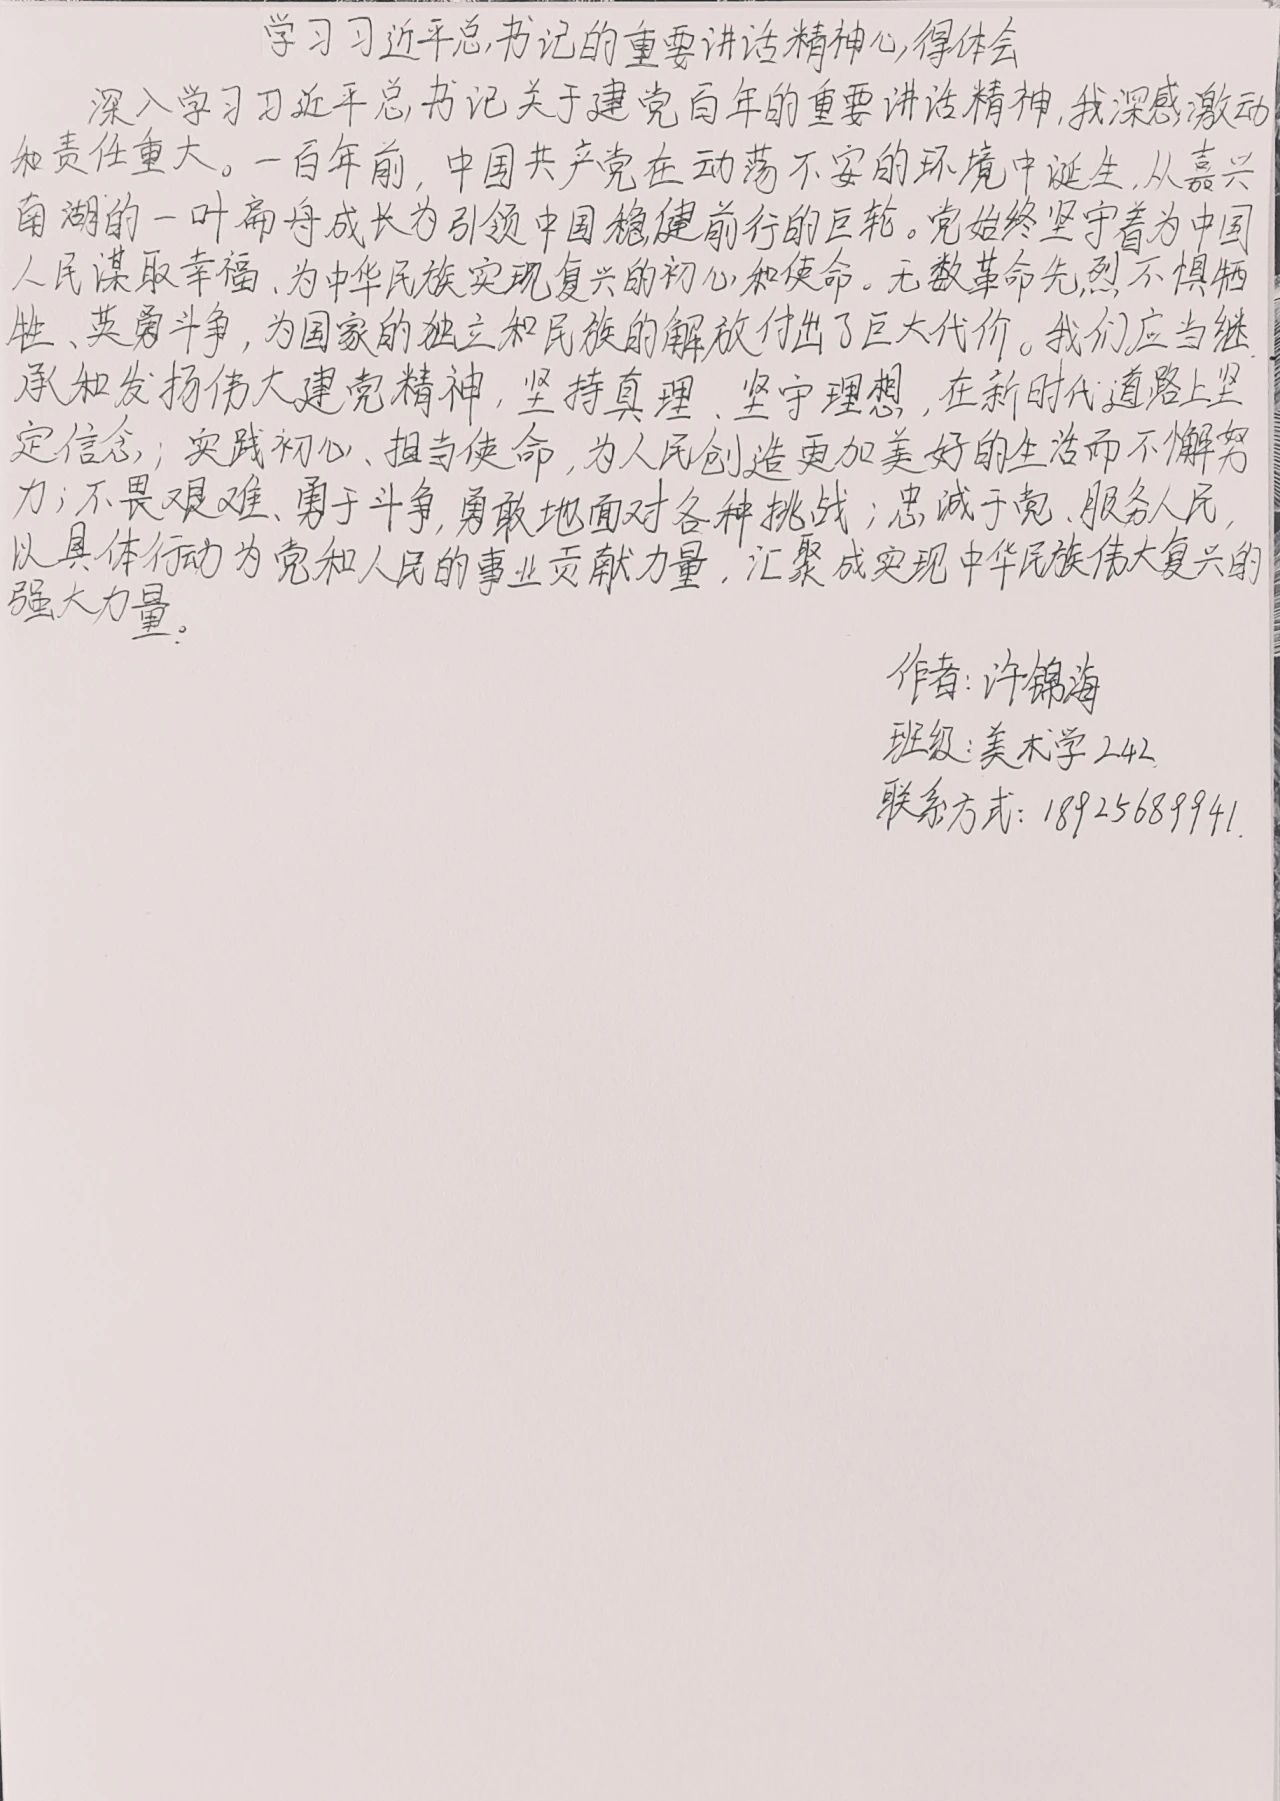 学习习近平总书记的重要讲话精神心得体会
深入学习习近平总书记关于建党百年的重要讲话精神,我深感激动
和责任重大。一百年前,中国共产党在动荡不安的环境中诞生,从嘉兴
南湖的一叶扁舟成长为引领中国稳健前行的巨轮。党始终坚守着为中国
人民谋取幸福、为中华民族实现复兴的初心和使命。无数革命先烈不惧牺
牲、英勇斗争,为国家的独立和民族的解放付出了巨大代价。我们应当继
承和发扬伟大建党精神,坚持真理、坚守理想,在新时代道路上坚
定信念;实践初心、担当使命,为人民创造更加美好的生活而不懈努
力;不畏艰难、勇于斗争,勇敢地面对各种挑战;忠诚于党、服务人民,
以具体行动为党和人民的事业贡献力量,汇聚成实现中华民族伟大复兴的
强大力量。
作者:许锦海
班级:美术学242
联系方式:18925689941.